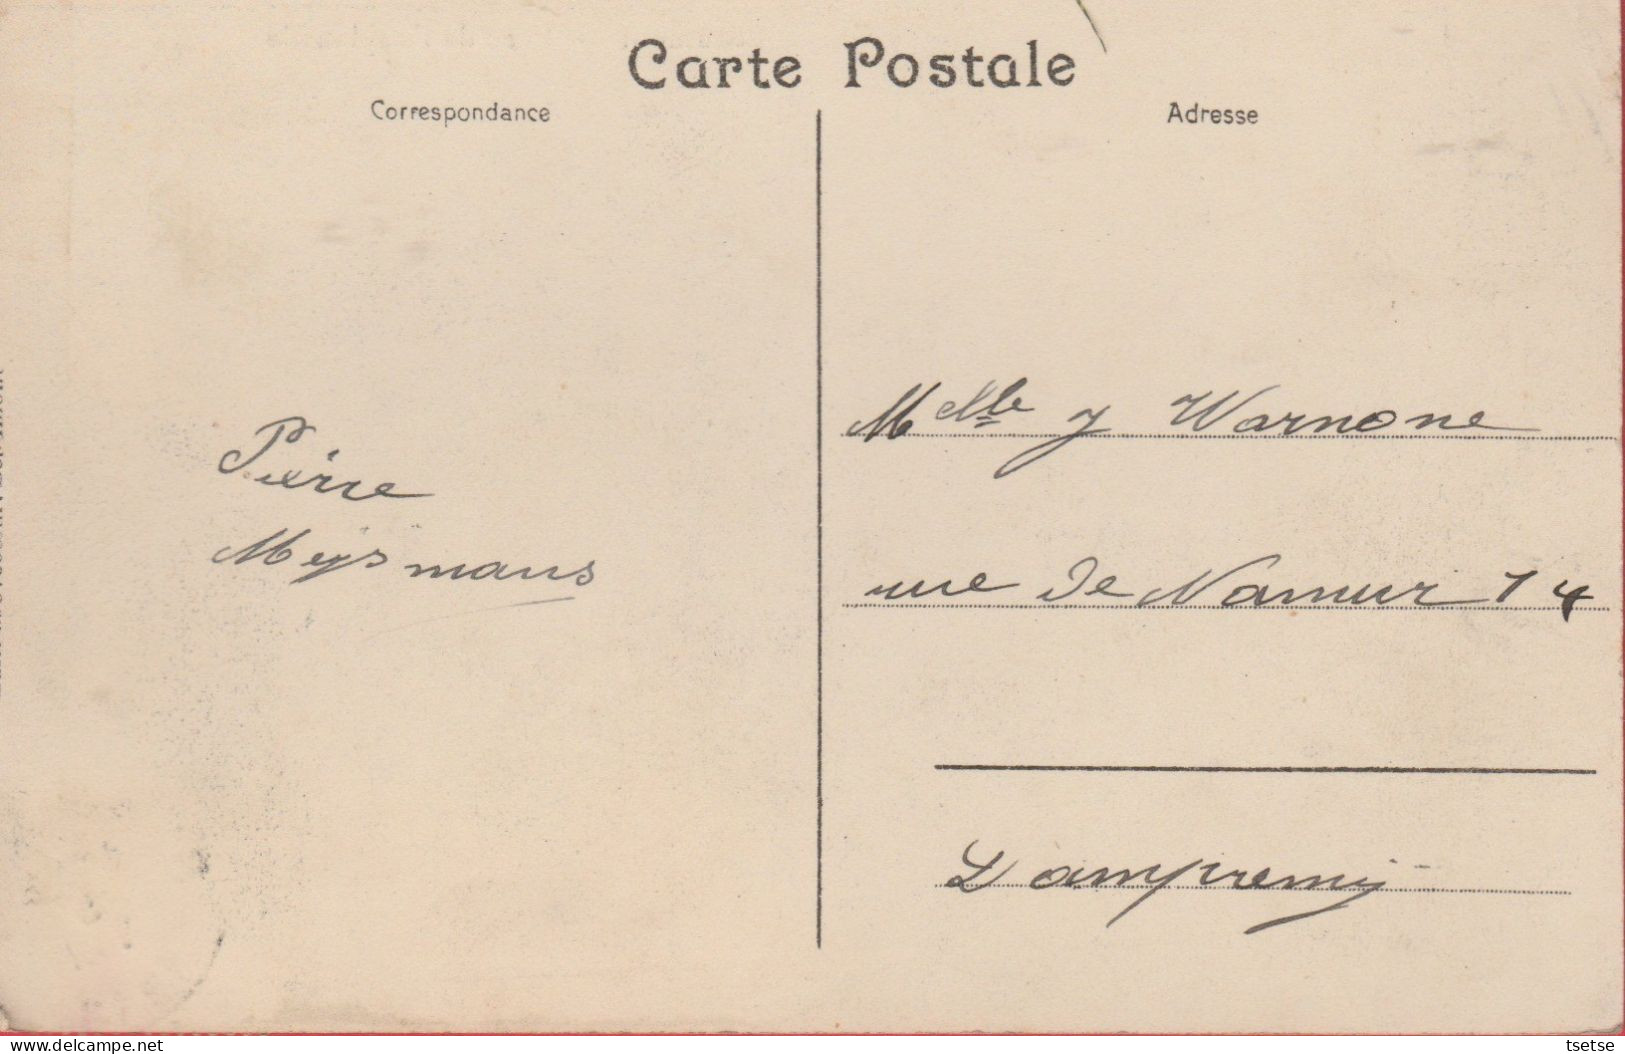 Carte Postale
Correspondance
Adresse
Pierre
Meysmans
Melle y Warnone
rue de Namur 14
Dampremy
delcampe.net
tsetse